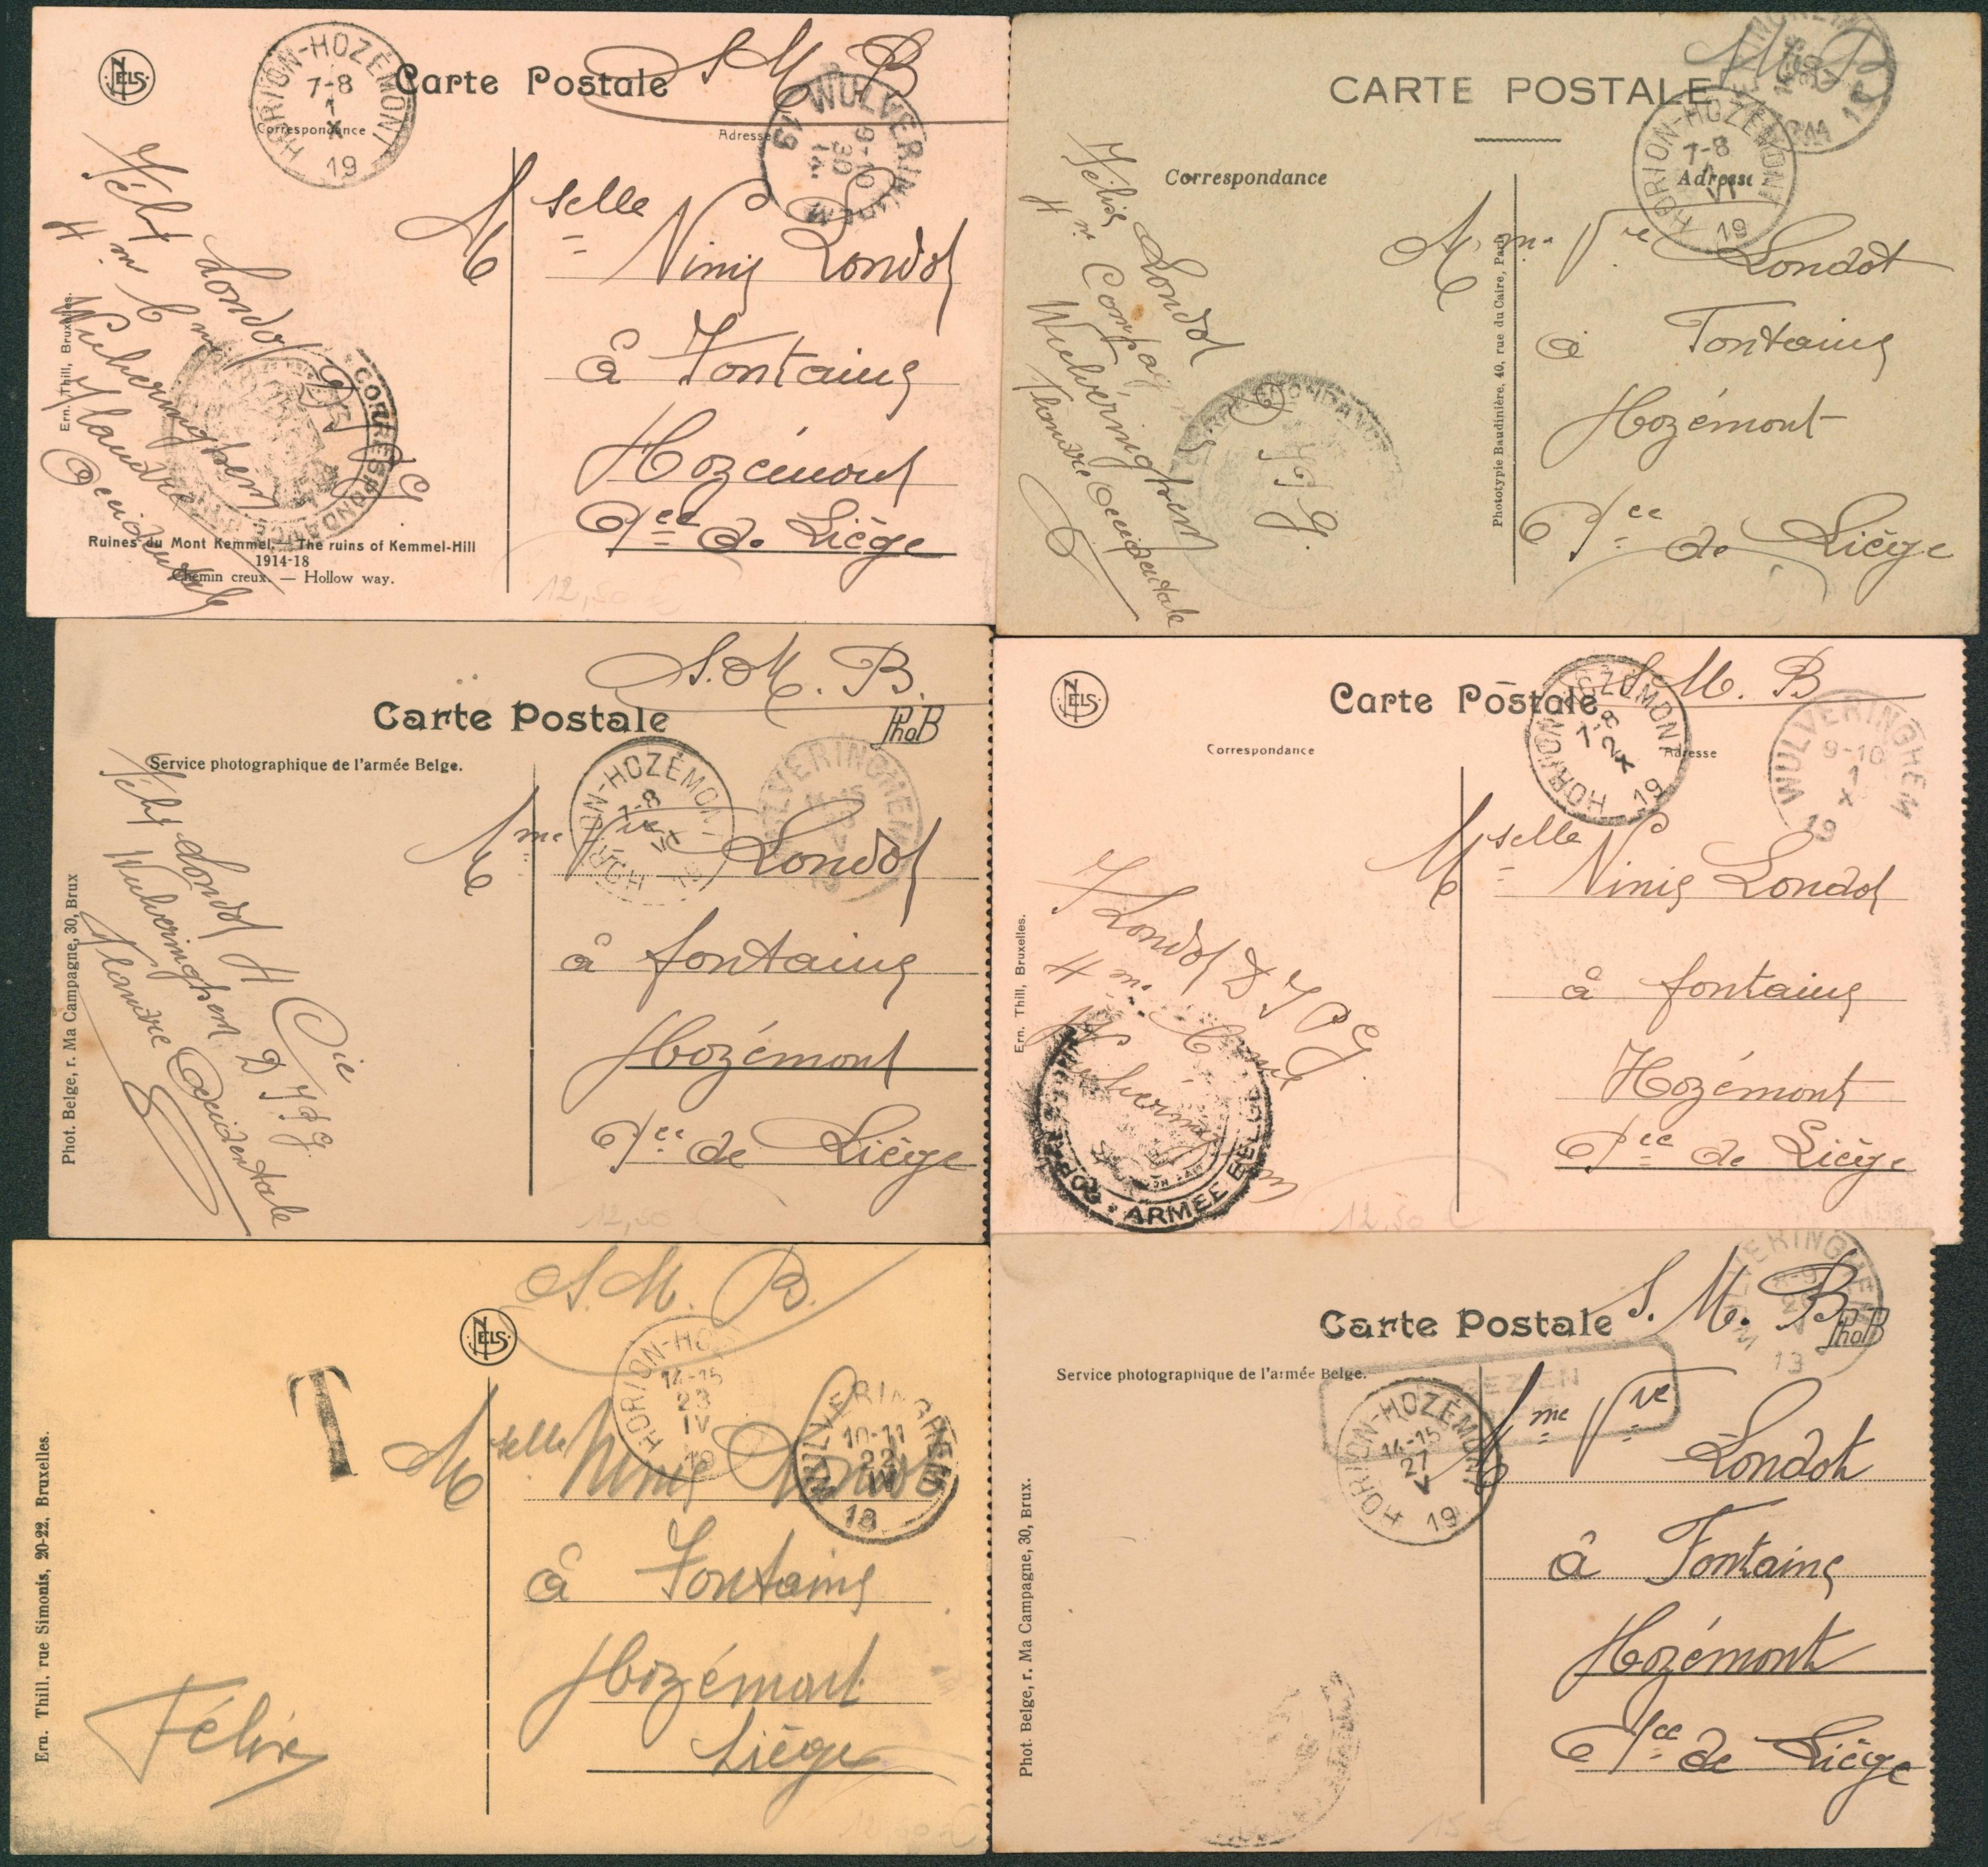 NELS
HORION-HOZÉMONT
7-8
1
X
19
Carte Postale
S M B
WULVERINGHEM
9-10
30
19
Correspondance
Adresse
Félix Londot D
4m
Wulveringhem
Flandre
Occidentale
CORRESPONDANCE
Ern. Thill, Bruxelles.
Mselle Ninie Londot
à Fontaine
Hozémont
Pce de Liège
Ruines du Mont Kemmel. — The ruins of Kemmel-Hill
1914-18
Chemin creux. — Hollow way.
12,50 €
CARTE POSTALE
HORION-HOZÉMONT
7-8
VI
19
Correspondance
Adresse
Félix Londot
4m Compag
Wulveringhem
Flandre Occidentale
Phototypie Baudinière, 40, rue du Caire, Paris
Mme Vve Londot
à Fontaine
Hozémont
Pce de Liège
S. M. B.
Carte Postale
PhoB
Service photographique de l'armée Belge.
HORION-HOZÉMONT
7-8
WULVERINGHEM
Félix Londot 4 Cie
Wulveringhem
Flandre Occidentale
Phot. Belge, r. Ma Campagne, 30, Brux
Mme Vve Londot
à fontaine
Hozémont
Pce de Liège
12,50
NELS
Carte Postale
S. M. B
HORION-HOZÉMONT
7-8
2
X
19
WULVERINGHEM
9-10
1
X
19
Correspondance
Adresse
F Londot
4m
ARMÉE BELGE
Ern. Thill, Bruxelles.
Mselle Ninie Londot
à fontaine
Hozémont
Pce de Liège
12,50 €
S. M. B.
NELS
T
HORION-HO
14-15
23
IV
19
WULVERINGHEM
10-11
22
IV
19
Mselle Ninie Londot
à Fontaine
Hozémont
Liège
Félix
Ern. Thill, rue Simonis, 20-22, Bruxelles.
Carte Postale
S. M. B
PhoB
WULVERINGHEM
8-9
V
Service photographique de l'armée Belge.
HORION-HOZÉMONT
14-15
27
V
19
Mme Vve
Londot
à Fontaine
Hozémont
Pce de Liège
Phot. Belge, r. Ma Campagne, 30, Brux.
15 €